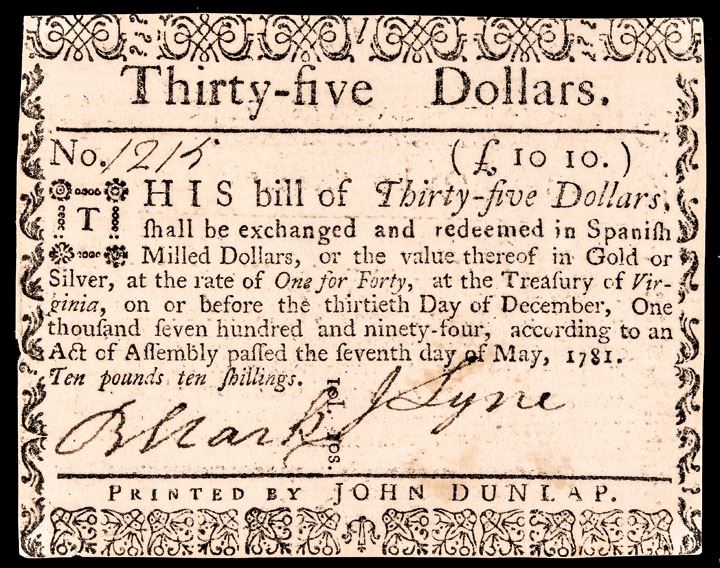 Thirty-five Dollars.
No. 1215 (£ 10 10.)
THIS bill of Thirty-five Dollars,
ſhall be exchanged and redeemed in Spaniſh
Milled Dollars, or the value thereof in Gold or
Silver, at the rate of One for Forty, at the Treaſury of Vir-
ginia, on or before the thirtieth Day of December, One
thouſand ſeven hundred and ninety-four, according to an
Act of Aſſembly paſſed the ſeventh day of May, 1781.
Ten pounds ten ſhillings.
10l. 10s.
J Lyne
PRINTED BY JOHN DUNLAP.